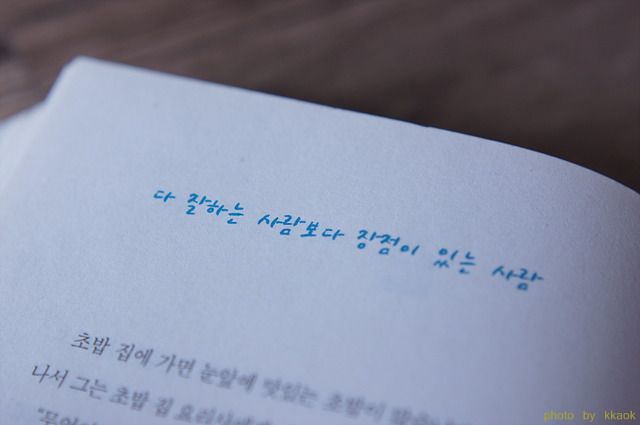 다 잘하는 사람보다 장점이 있는 사람
초밥 집에 가면 눈앞에 맛있는 초밥이
나서 그는 초밥 집 요리사에게
photo by kkaok